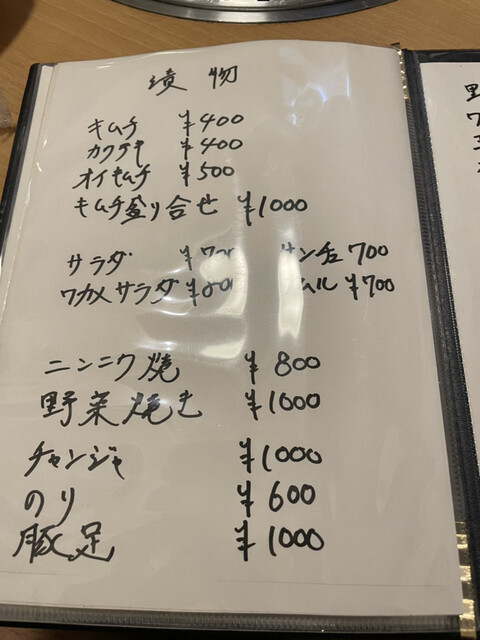 漬物
キムチ ¥400
カクテキ ¥400
オイキムチ ¥500
キムチ盛り合せ ¥1000
サラダ ¥700 サンチュ 700
ワカメサラダ ¥800 ムル ¥700
ニンニク焼 ¥800
野菜焼き ¥1000
チャンジャ ¥1000
のり ¥600
豚足 ¥1000